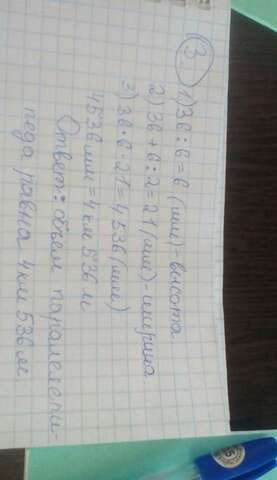 3
1) 36 : 6 = 6 (мм) - высота
2) 36 + 6 : 2 = 21 (мм) - ширина
3) 36 · 6 · 21 = 4536 (мм)
4536 мм = 4 км 536 м
Ответ: объем паралелепи-
педа равна 4 км 536 м.